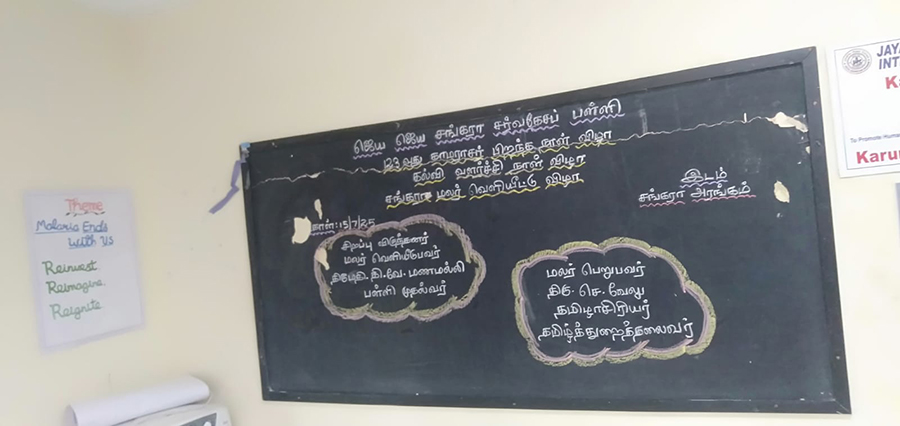 ஜெய ஜெய சங்கரா சர்வதேசப் பள்ளி
123 வது காமராசர் பிறந்த நாள் விழா
கல்வி வளர்ச்சி நாள் விழா
சங்கரா மலர் வெளியீட்டு விழா
இடம்
சங்கரா அரங்கம்
நாள்:15/7/25
சிறப்பு விருந்தினர்
மலர் வெளியிடுபவர்
திருமதி. தி. வே. மணமல்லி
பள்ளி முதல்வர்
மலர் பெறுபவர்
திரு. செ. வேலு
தமிழாசிரியர்
தமிழ்த்துறைத்தலைவர்
Theme
Malaria Ends
With Us
Reinvest,
Reimagine,
Reignite
JAYA
INT
Ka
To Promote Human
Karu